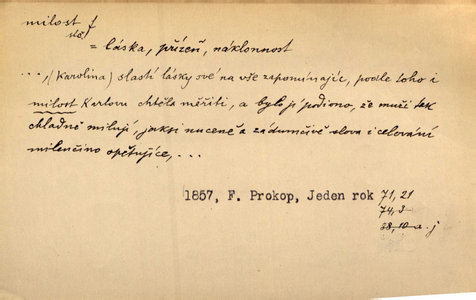 milost f
stč.
= láska, přízeň, náklonnost
..., (Karolina) slastí lásky své na vše zapomínajíc, podle toho i
milost Karlovu chtěla měřiti, a bylo jí podivno, že muži tak
chladně milují, jaksi nuceně a zádumčivě slova i celování
milenčino opětujíce, ...
1857, F. Prokop, Jeden rok 71, 21
74, 3
38, 10 a. j